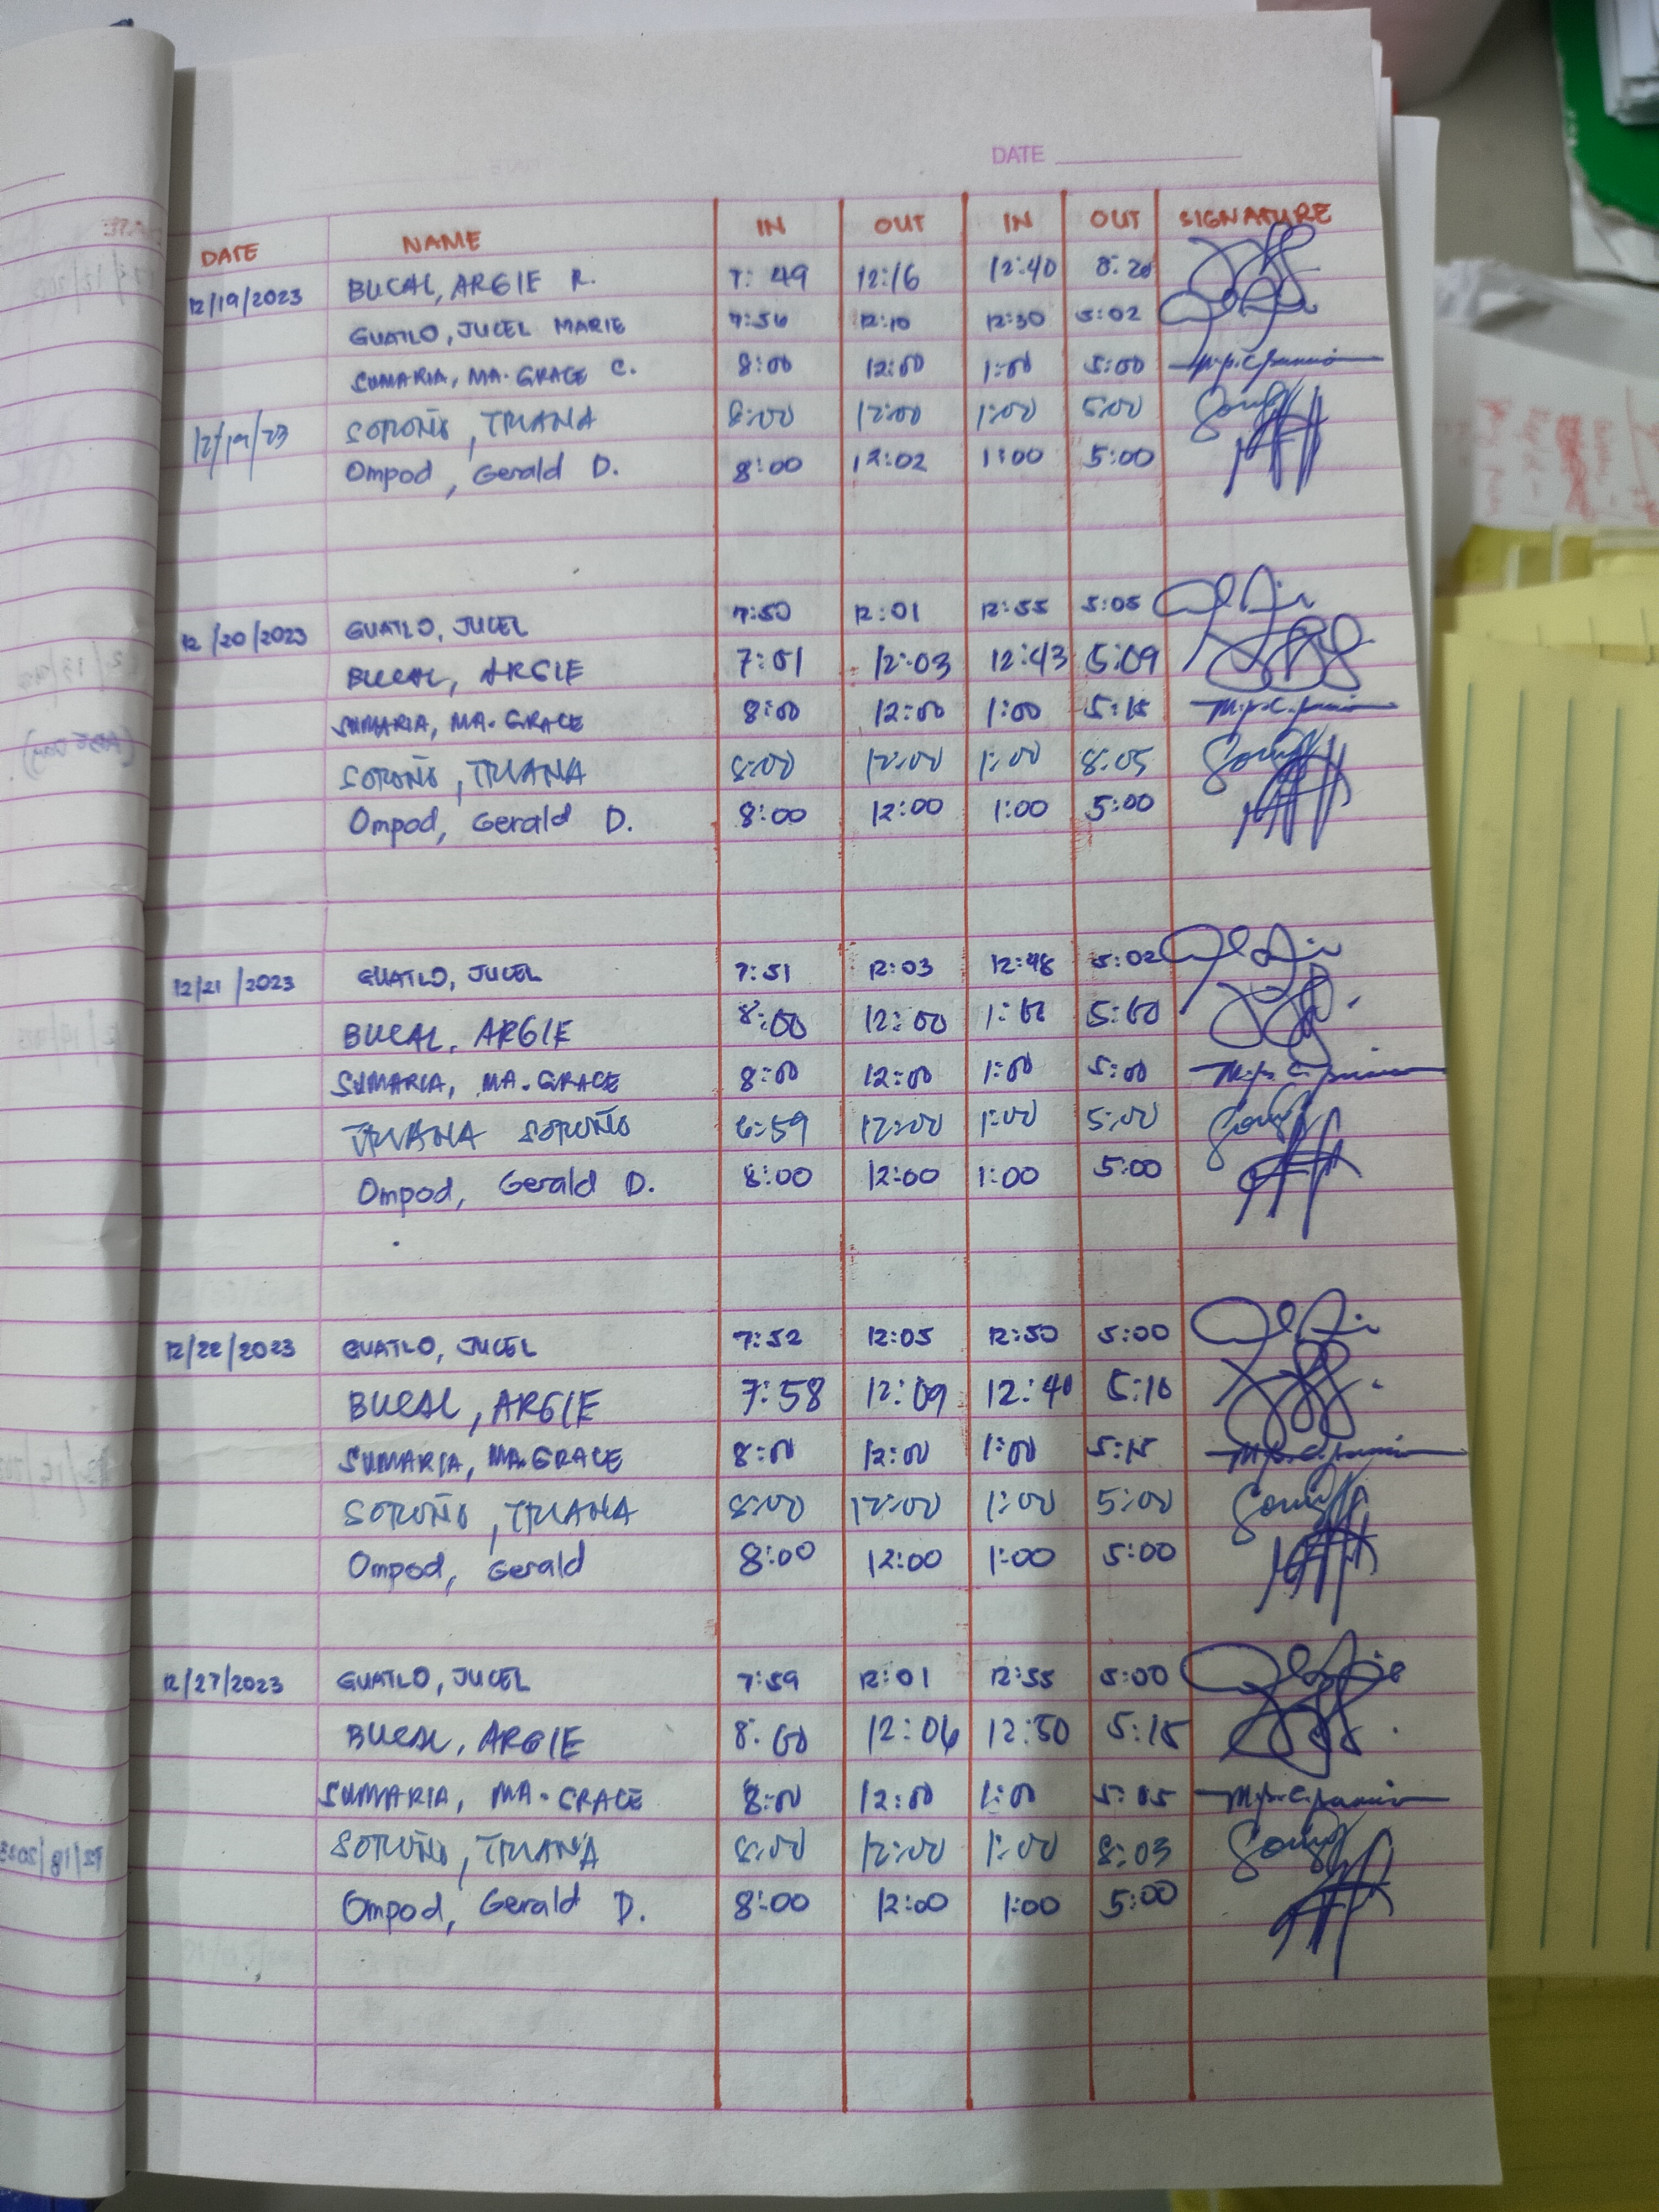 DATE
DATE NAME IN OUT IN OUT SIGNATURE
12/19/2023 BUCAL, ARGIE R. 7:49 12:16 12:40
GUATLO, JUCEL MARIE 7:56 12:10 12:30 5:02
SUMARIA, MA. GRACE C. 8:00 12:00 1:00 5:00
12/19/23 SOROÑO, TRIANA 8:00 12:00 1:00 5:00
Ompod, Gerald D. 8:00 12:02 1:00 5:00
12/20/2023 GUATLO, JUCEL 7:50 12:01 12:55 5:05
BUCAL, ARGIE 7:51 12:03 12:43 5:09
SUMARIA, MA. GRACE 8:00 12:00 1:00 5:15
SOROÑO, TRIANA 8:00 12:00 1:00 8:05
Ompod, Gerald D. 8:00 12:00 1:00 5:00
12/21/2023 GUATLO, JUCEL 7:51 12:03 12:48 5:02
BUCAL, ARGIE 8:00 12:00 1:00 5:00
SUMARIA, MA. GRACE 8:00 12:00 1:00 5:00
TRIANA SOROÑO 6:59 12:00 1:00 5:00
Ompod, Gerald D. 8:00 12:00 1:00 5:00
12/22/2023 GUATLO, JUCEL 7:52 12:05 12:50 5:00
BUCAL, ARGIE 7:58 12:09 12:40 5:10
SUMARIA, MA. GRACE 8:00 12:00 1:00 5:15
SOROÑO, TRIANA 8:00 12:00 1:00 5:00
Ompod, Gerald 8:00 12:00 1:00 5:00
12/27/2023 GUATLO, JUCEL 7:59 12:01 12:55 5:00
BUCAL, ARGIE 8:00 12:06 12:50 5:15
SUMARIA, MA. GRACE 8:00 12:00 1:00 5:05
SOROÑO, TRIANA 8:00 12:00 1:00 8:03
Ompod, Gerald D. 8:00 12:00 1:00 5:00